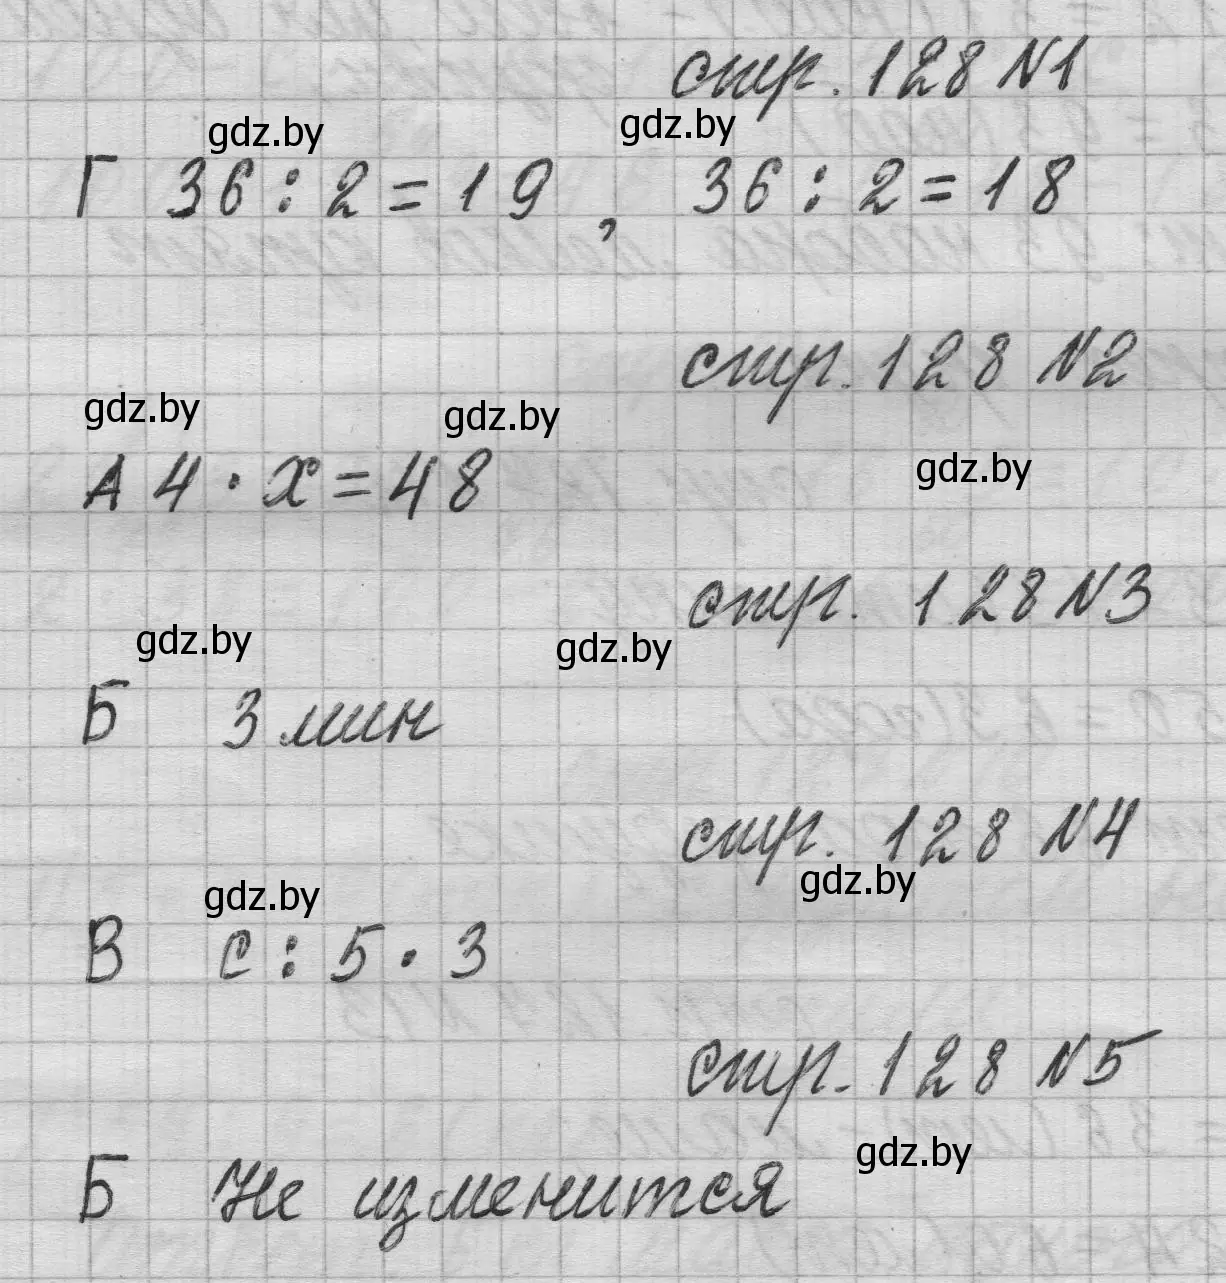 стр. 128 N1
gdz.by gdz.by
Г 36 : 2 = 19 , 36 : 2 = 18
стр. 128 N2
gdz.by gdz.by
А 4 · x = 48 gdz.by
стр. 128 N3
gdz.by gdz.by
Б 3 мин
стр. 128 N4
gdz.by gdz.by
В с : 5 · 3
стр. 128 N5
gdz.by
Б Не изменится